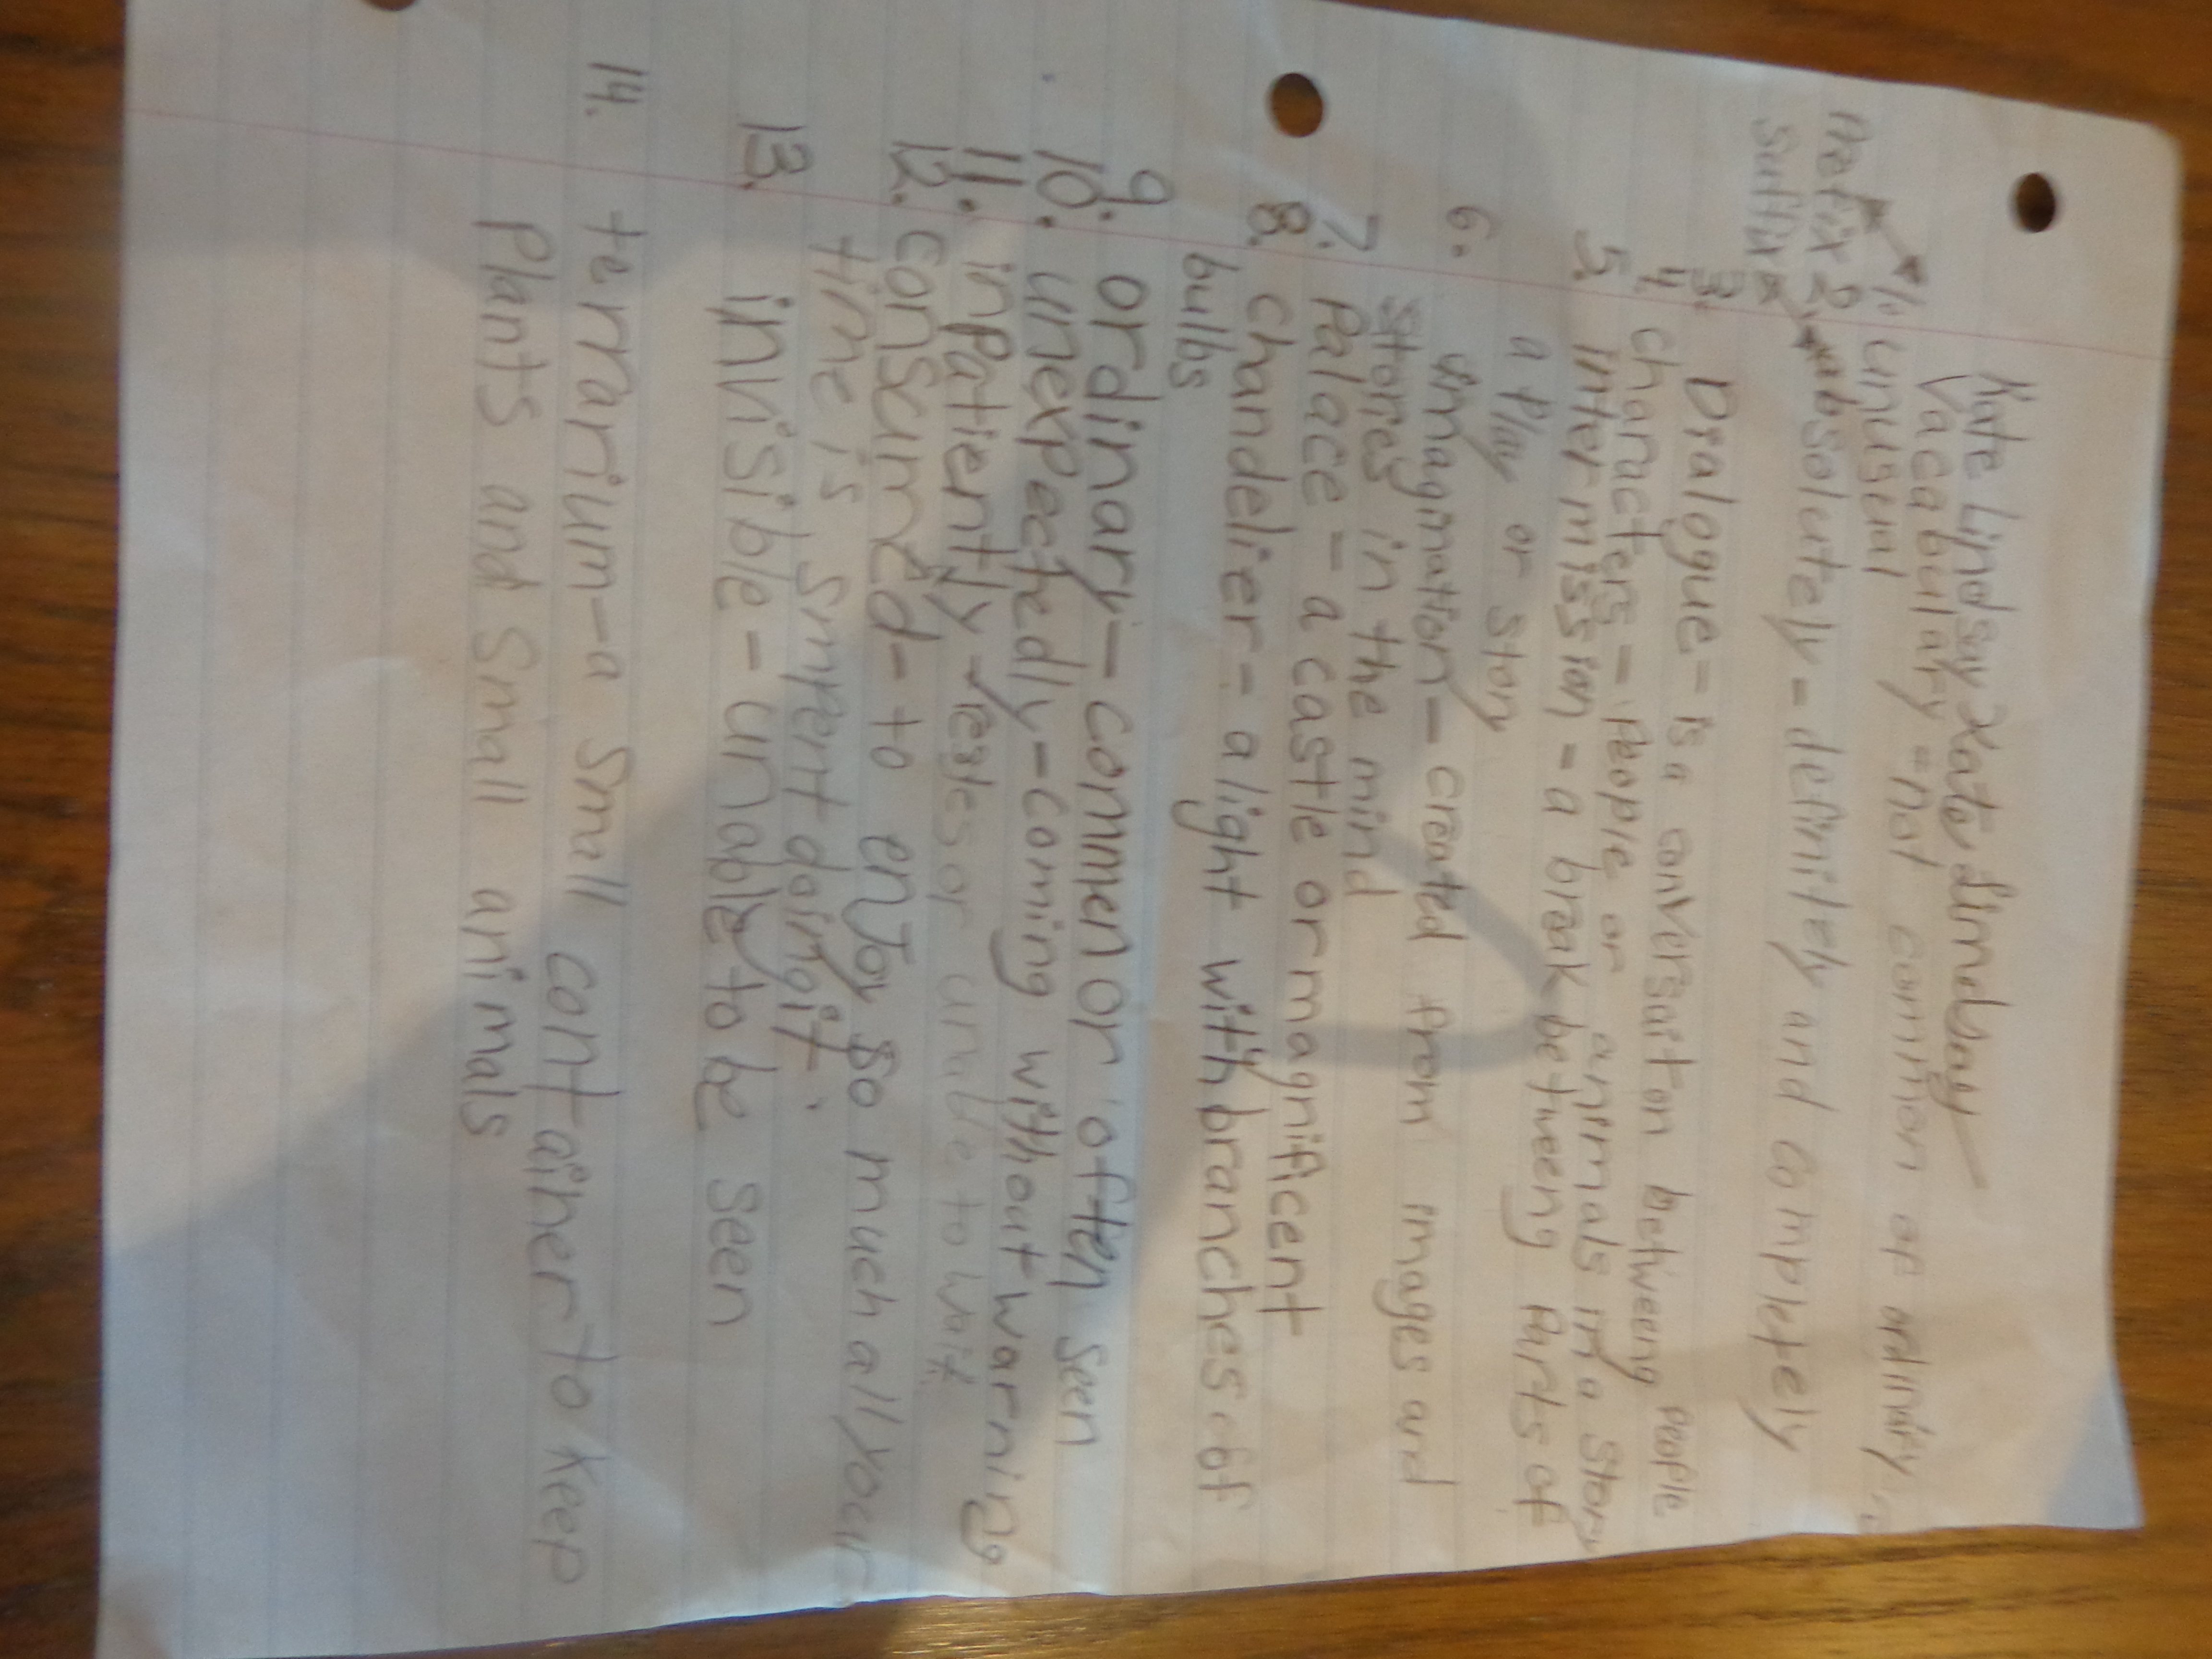 Kate Lindsay Kate Lindsay
Vacabulary - not common or
1. unusual
Prefix 2. absolutely - definitely and completely
suffix
3. Dialogue - is a conversation betweeng people
4. characters - people or animals in a story
5. intermission - a break betweeng parts of
a play or story
6. imagination - created from images and
stories in the mind
7. Palace - a castle or magnificent
8. chandelier - a light with branches of
bulbs
9. ordinary - commen or often seen
10. unexpectedly - coming without warning
11. inpatiently - or to wait
12. consumed - to enjoy so much all your
time is spent doing it.
13. invisible - unable to be seen
14. terrarium - a small container to keep
Plants and small animals